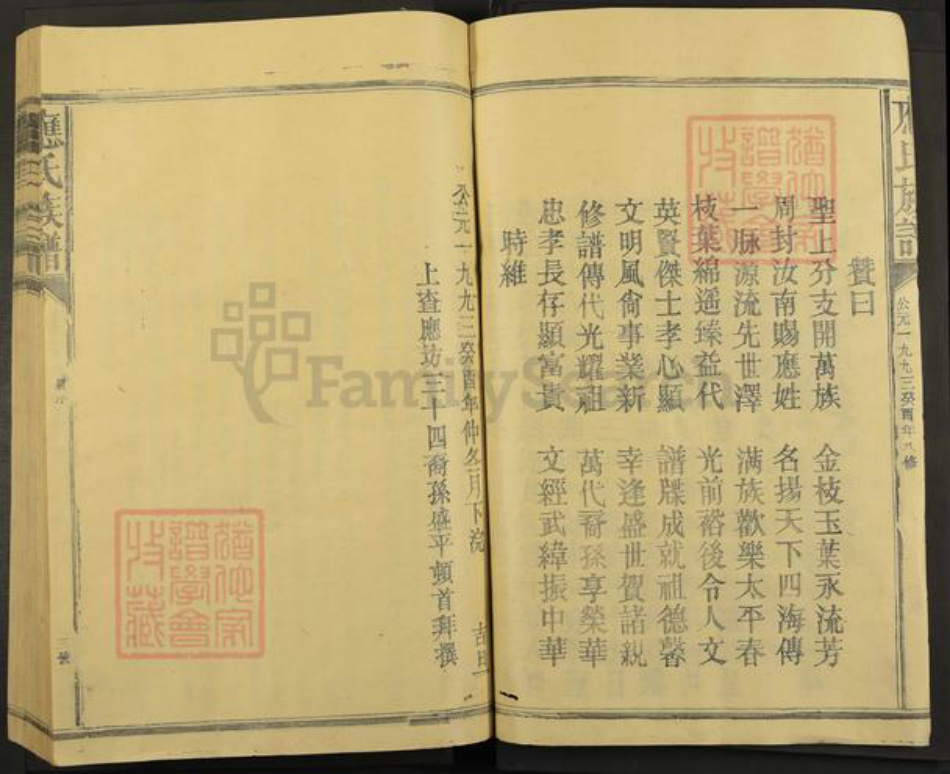 應氏族譜
公元一九九三癸酉年八修
贊曰
聖上分支開萬族 金枝玉葉永流芳
周封汝南賜應姓 名揚天下四海傳
一脈源流先世澤 满族歡樂太平春
枝葉綿遥臻益代 光前裕後令人文
英賢傑士孝心顯 譜牒成就祖德馨
文明風尙事業新 幸逢盛世賀諸親
修譜傳代光耀祖 萬代裔孫享榮華
忠孝長存顯富貴 文經武緯振中華
時維
公元一九九三癸酉年仲冬月下浣 吉旦
上查應坊三十四裔孫盛平頓首拜撰
應氏族譜
三號
譜學會
收藏
譜學會
收藏
FamilySearch